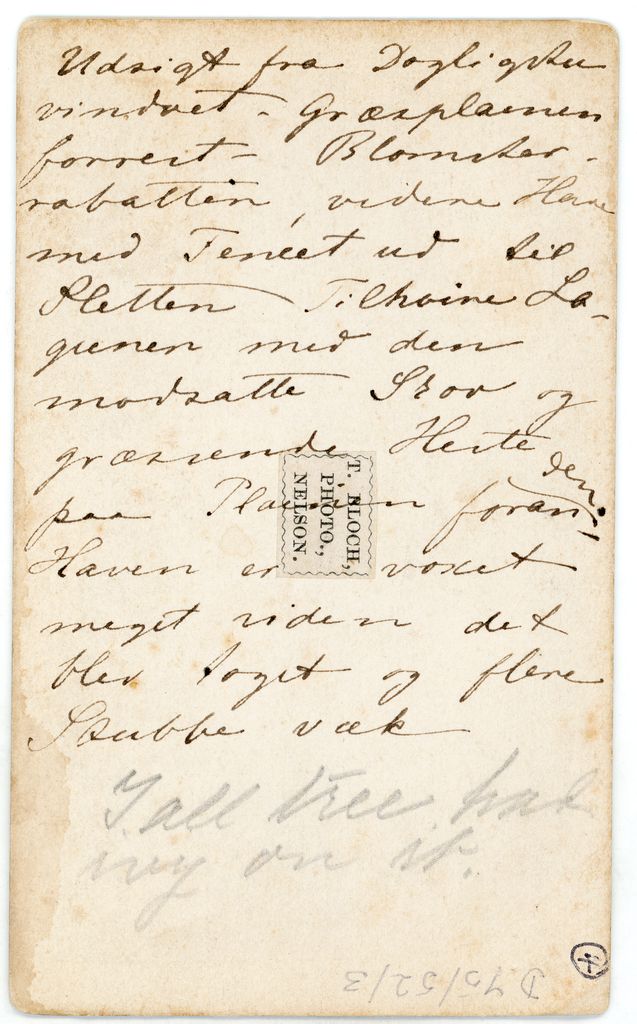 Udsigt fra Dagligstu
vinduet - Græsplainen
forrest - Blomster-
rabatten, videre Have
med Fencet ud til
Sletten Tilhøire La-
gunen med den
modsatte Skov og
græssende Heste
paa Plainen foran den.
Haven er voxet
meget siden det
blev taget og flere
Stubbe væk
T. BLOCH,
PHOTO.,
NELSON.
Tall tree has
ivy on it.
D 45/52/3